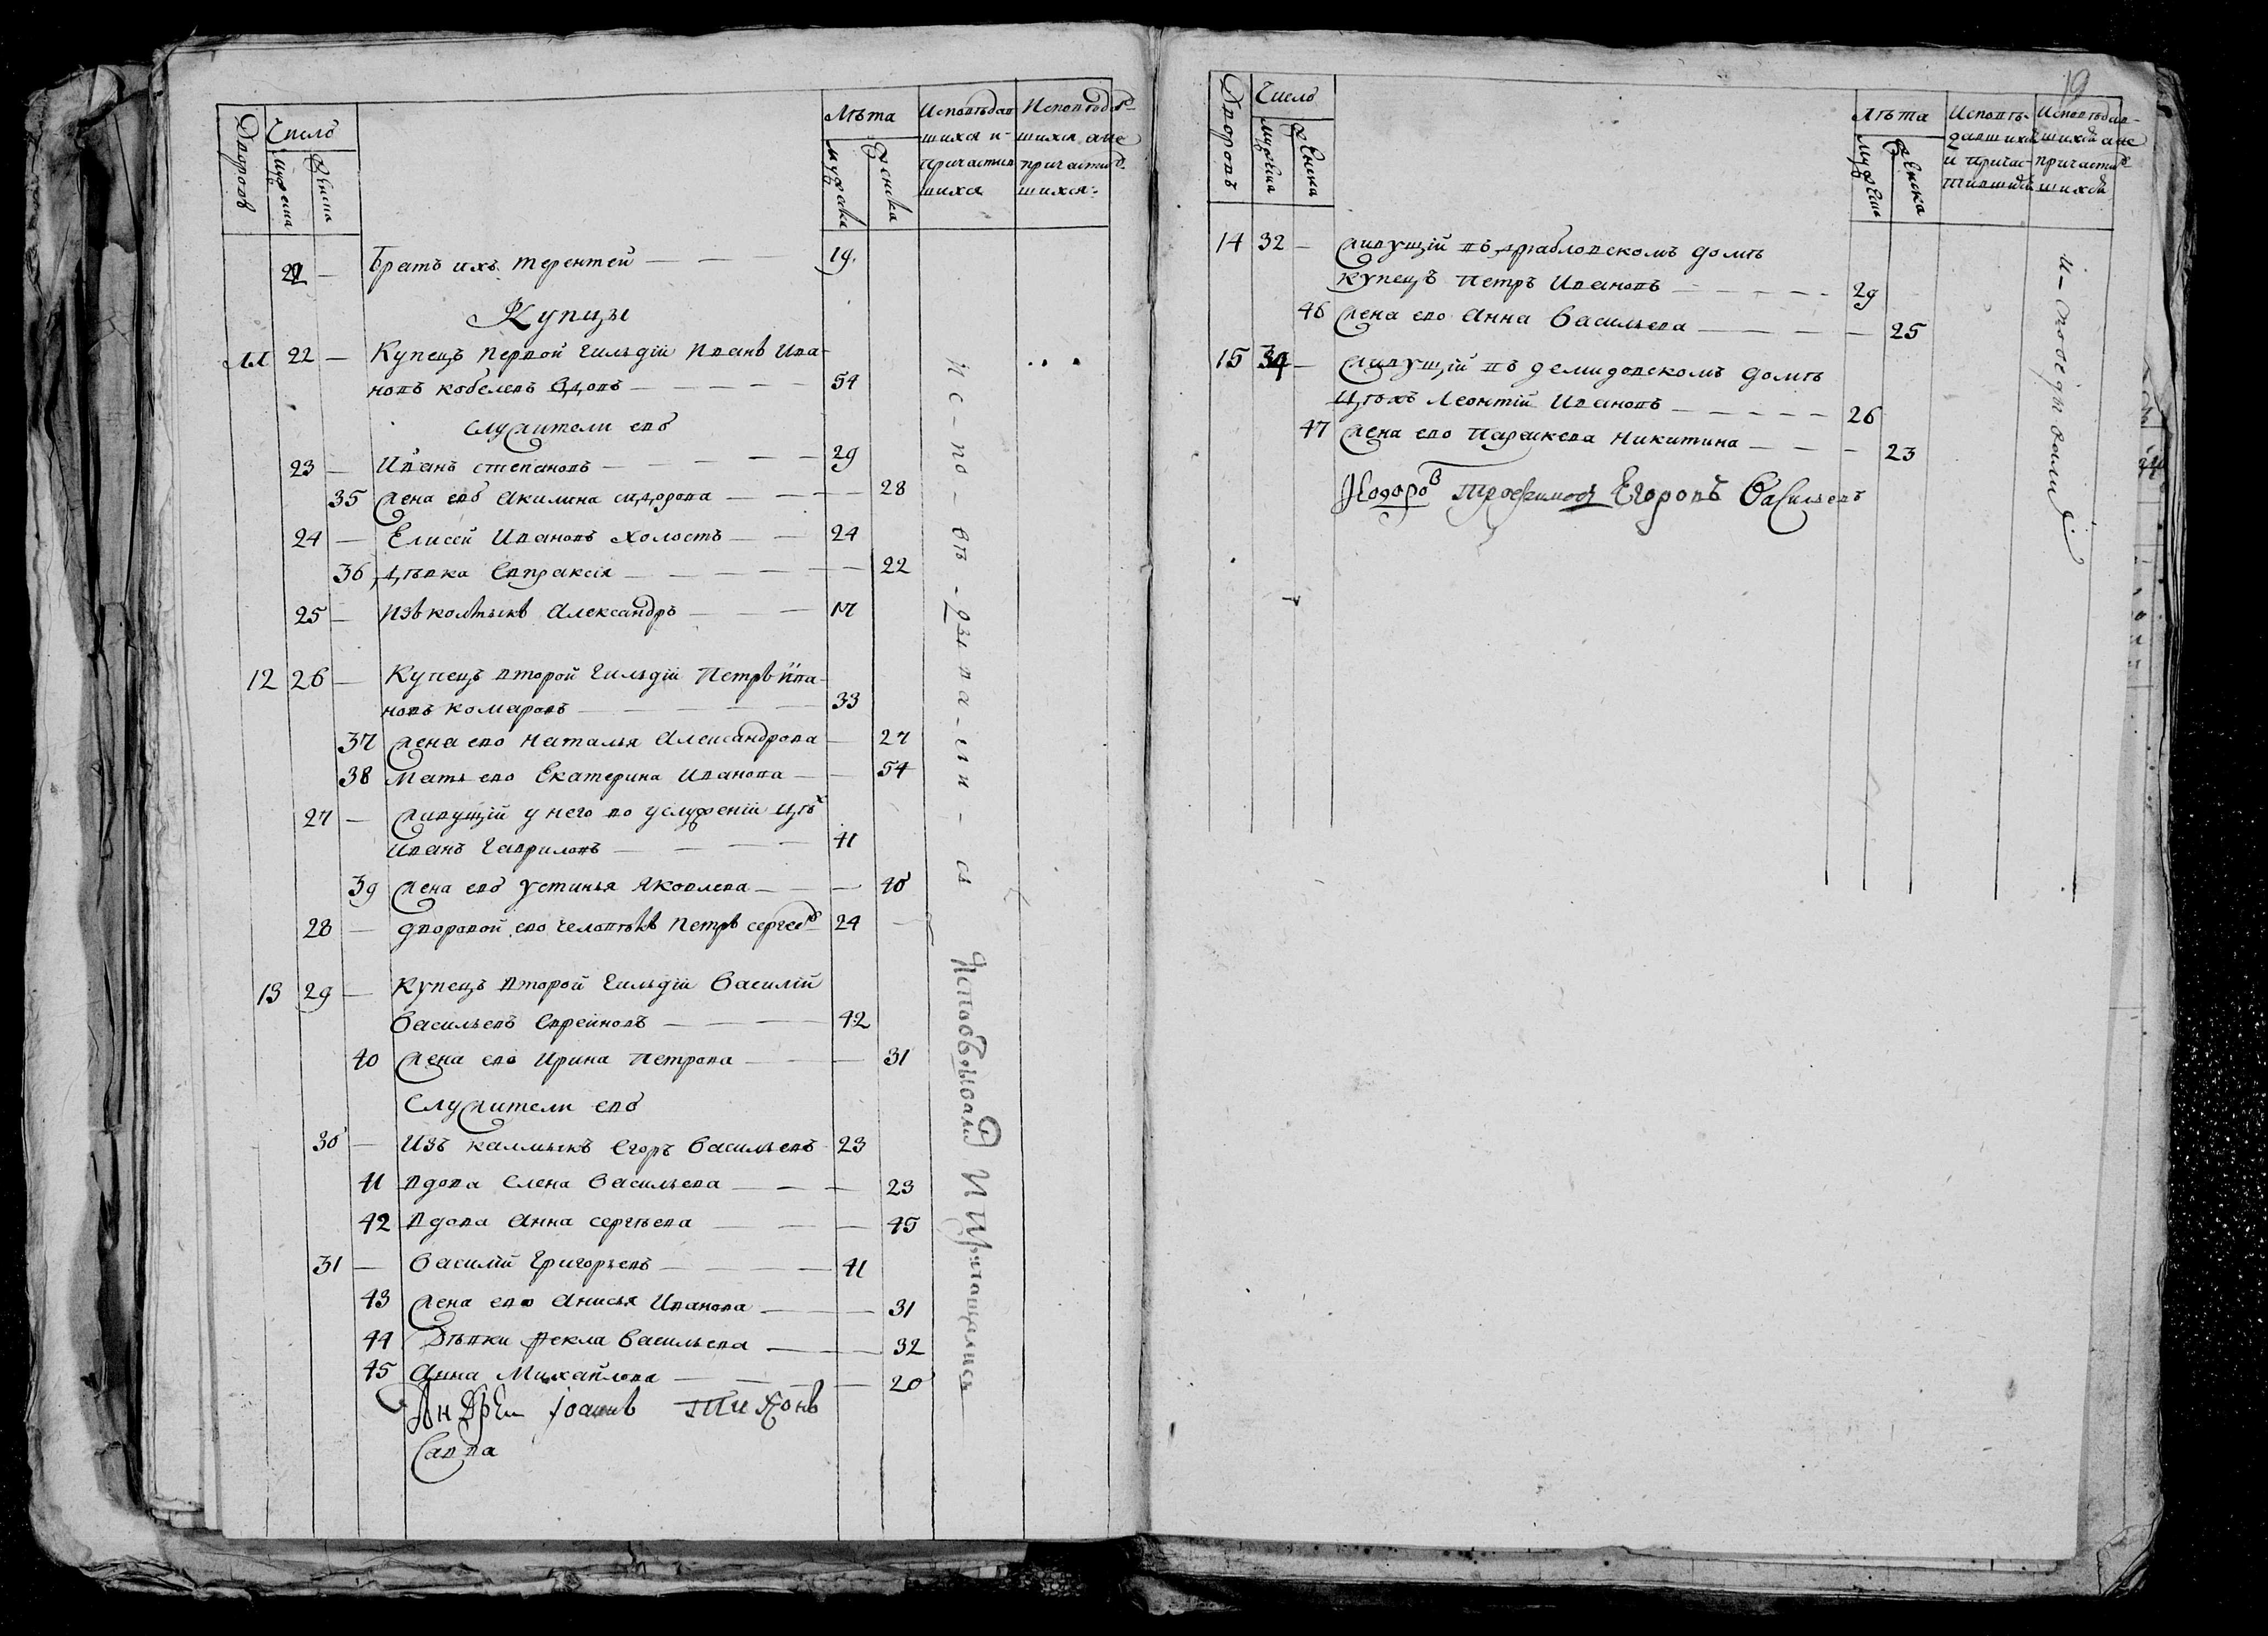 Дворовъ
Число
мужеска
женска
Лѣта
мужеска
женска
Исповѣдав
шихся и
причастив
шихся
Исповѣдав
шихся а не
причастив
шихся:
21 — Братъ ихъ Терентей — 19
Купцы
11 22 — Купецъ первой гильдіи Иванъ Ива
новъ Кобелевъ вдовъ — 54
служители его
23 — Иванъ Степановъ — 29
35 жена его Акилина Сидорова — 28
24 — Елисей Ивановъ холостъ — 24
36 дѣвка Евпраксія — 22
25 — Изъ колмыкъ Александръ — 17
12 26 — Купецъ второй гильдіи Петръ Ива
новъ Комаровъ — 33
37 жена его Наталья Александрова — 27
38 Мать его Екатерина Иванова — 54
27 — живущій у него во услуженіи цѣх
Иванъ Гавриловъ — 41
39 жена его Устинья Яковлева — 40
28 — дворовой его человѣкъ Петръ Сергеев 24
13 29 — Купецъ второй гильдіи Василій
Васильевъ Евреиновъ — 42
40 жена его Ирина Петрова — 31
Служители его
30 — Изъ калмыкъ Егоръ Васильевъ 23
41 вдова Елена Васильева — 23
42 вдова Анна Сергѣева — 45
31 — Василій Григорьевъ — 41
43 жена его Анисья Иванова — 31
44 Дѣвки Фекла Васильева — 32
45 Анна Михайлова — 20
Андреи Іоаннъ Тихонъ
Савва
Ис-по-вѣ-ды-ва-ли-сь
Исповѣдывались И Причащались
19
Дворовъ
Число
мужеска
женска
Лѣта
мужеска
женска
Исповѣ-
давшихся
и причас-
тившихся
Исповѣдав-
шихся а не
причастив
шихся
14 32 — живущій въ домѣ
купецъ Петръ Ивановъ — 29
46 жена его Анна Васильева — 25
15 34 — живущій въ Демидовскомъ домѣ
цѣхъ Леонтій Ивановъ — 26
47 жена его Параскева Никитина — 23
Ѳодоров Трофимов Егоровъ Васильевъ